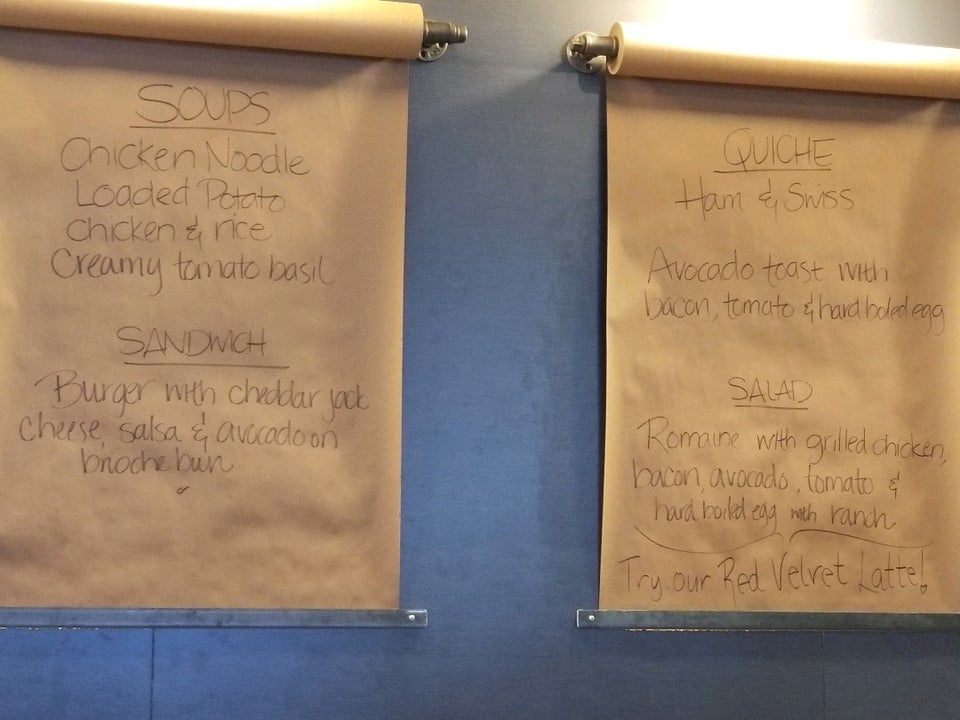 SOUPS
Chicken Noodle
Loaded Potato
Chicken & rice
Creamy tomato basil
SANDWICH
Burger with cheddar jack
cheese, salsa & avocado on
brioche bun
QUICHE
Ham & Swiss
Avocado toast with
bacon, tomato & hard boiled egg
SALAD
Romaine with grilled chicken,
bacon, avocado, tomato &
hard boiled egg with ranch
Try our Red Velvet Latte!